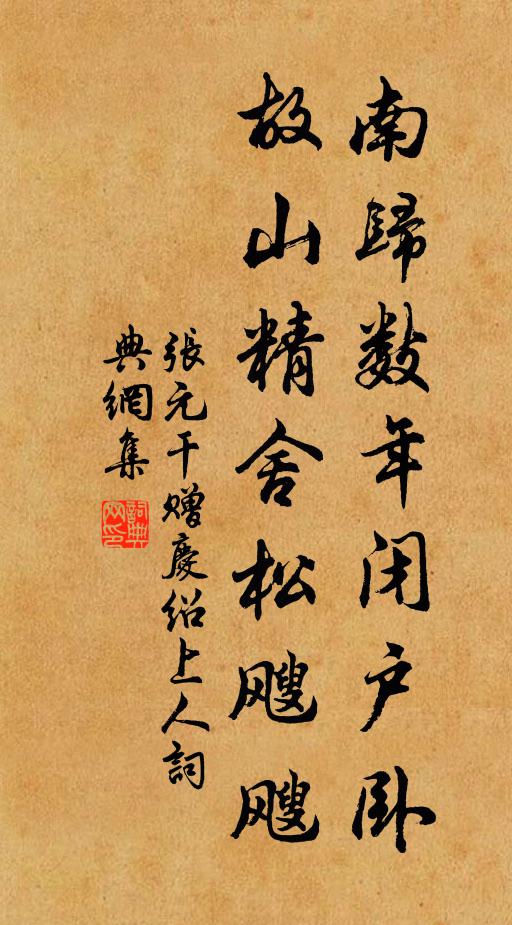 南歸数年闭户卧
故山精舍松飕飕
張元干贈慶绍上人詞
典網集
詞典网印